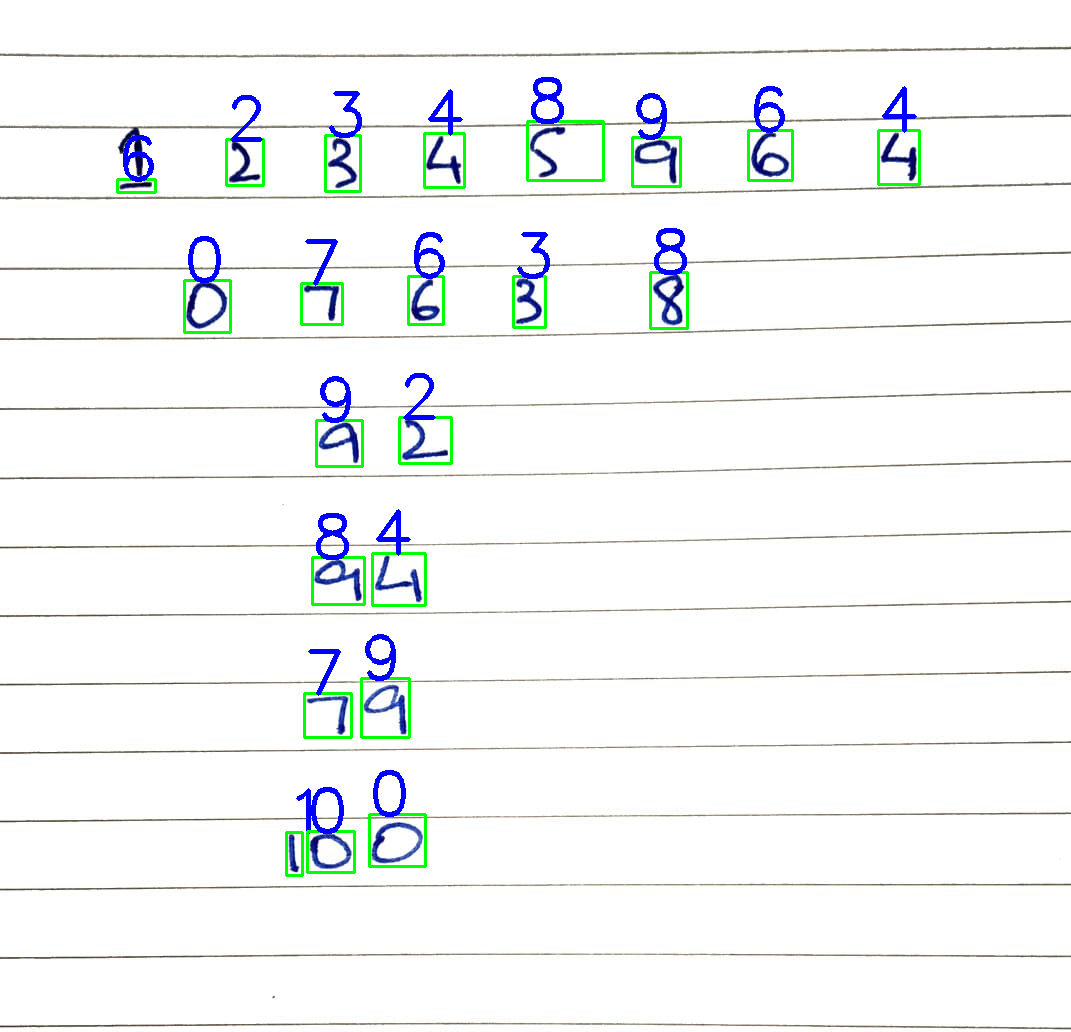 6 2 3 4 8 9 6 4
1 2 3 4 5 9 6 4
0 7 6 3 8
0 7 6 3 8
9 2
9 2
8 4
9 4
7 9
7 9
1 0 0
1 0 0